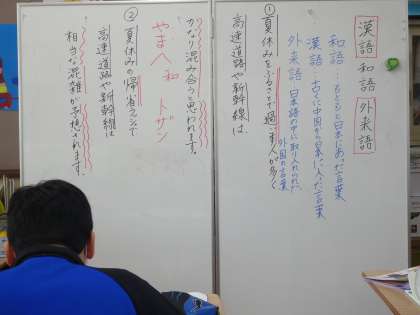 漢語 和語 外来語
和語…もともと日本にあった言葉
漢語…古くに中国から日本に入った言葉
外来語 日本語の中に取り入れられた
外国の言葉
① 夏休みをふるさとで過ごす人が多く
高速道路や新幹線は
かなり混み合うと思われます。
やまへ 和 トザン
② 夏休みの帰省ラッシュで
高速道路や新幹線は
相当な混雑が予想されます。